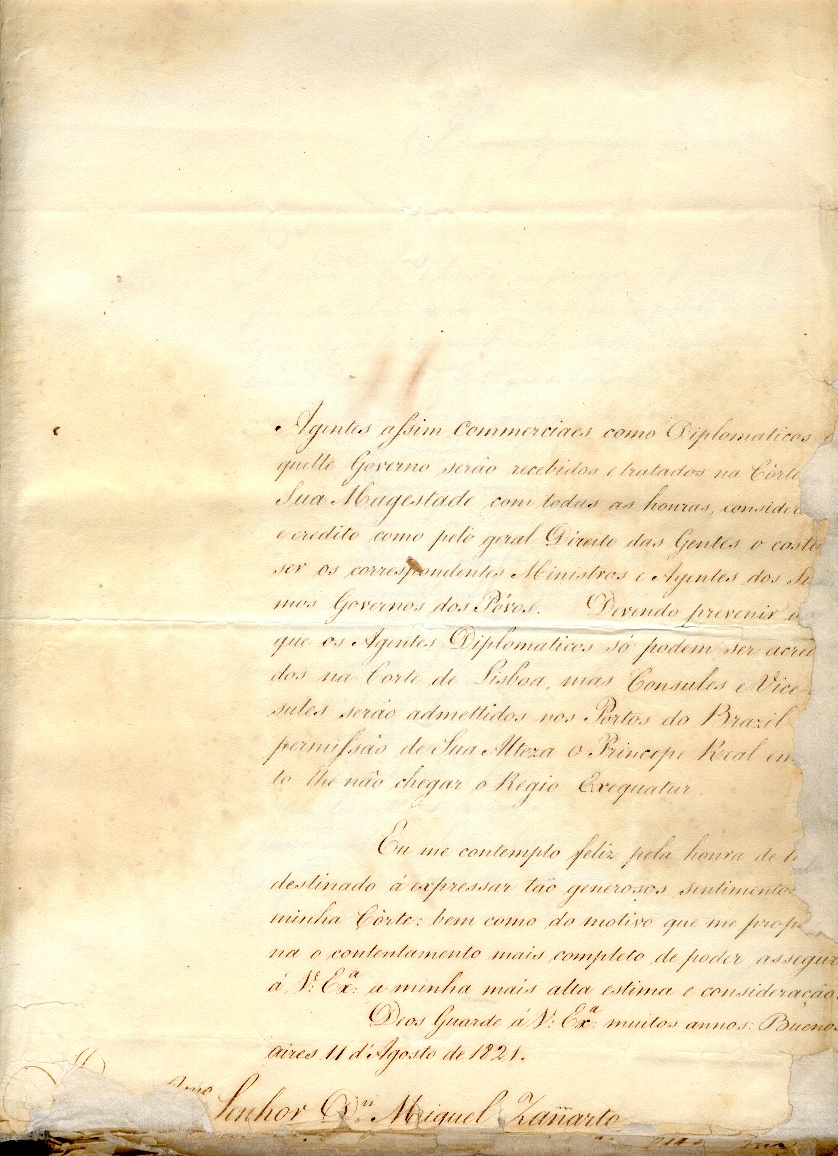 Agentes assim Commerciaes como Diplomaticos
quelle Governo serão recebidos e tratados na Côrte
Sua Magestade com todas as honras, consider
e credito como pelo geral Direito das Gentes o costu
ser os correspondentes Ministros e Agentes dos
mos Governos dos Póvos. Devendo prevenir
que os Agentes Diplomaticos só podem ser acre
dos na Corte de Lisboa, mas Consules e Vice
sules serão admettidos nos Portos do Brazil
permissão de Sua Alteza o Principe Real en
to lhe não chegar o Regio Exequatur.
Eu me contemplo feliz pela honra de t
destinado á expressar tão generosos sentimento
minha Côrte: bem como do motivo que me propo
na o contentamento mais completo de poder assegur
á V.ª Ex.ª a minha mais alta estima e consideração.
Deos Guarde á V.ª Ex.ª muitos annos: Buenos
aires 11 d'Agosto de 1821.
Senhor D.n Miguel Zañarto